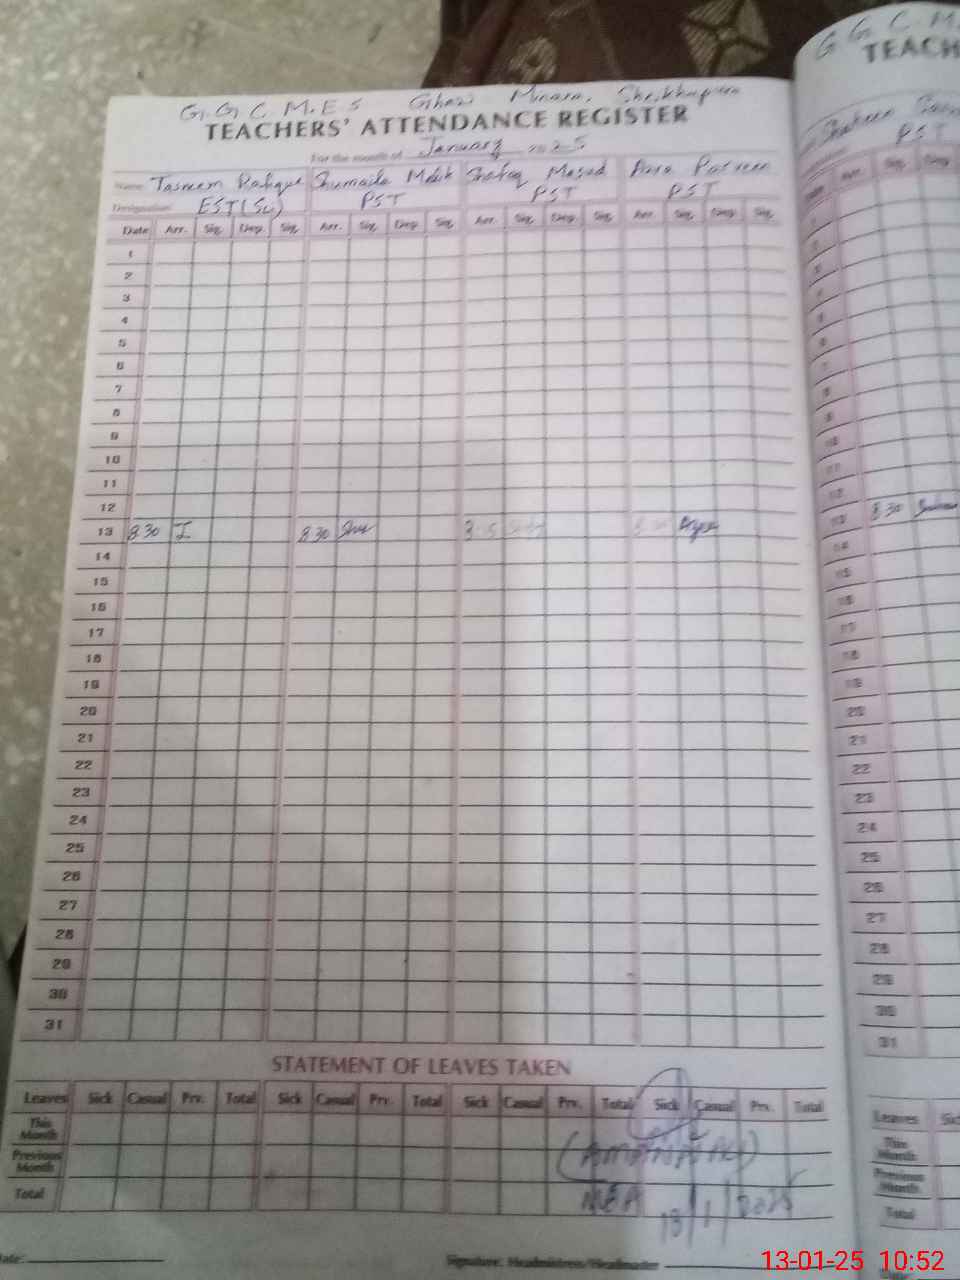 G. G. C. M. E. S Ghazi Minara, Sheikhupura
TEACHERS' ATTENDANCE REGISTER
For the month of January 2025
Name Tasneem Rafique Shumaila Malik Shafaq Masud Parveen
Designation EST (Sc) PST PST PST
Date Arr. Sig. Dep. Sig. Arr. Sig. Dep. Sig. Arr. Sig. Dep. Sig. Arr. Sig. Dep. Sig.
1
2
3
4
5
6
7
8
9
10
11
12
13 8.30 8.30
14
15
16
17
18
19
20
21
22
23
24
25
26
27
28
29
30
31
STATEMENT OF LEAVES TAKEN
Leaves Sick Casual Prv. Total Sick Casual Prv. Total Sick Casual Prv. Total Sick Casual Prv. Total
This Month
Previous Month
Total
MEA 13/1/2025
Date: Signature: Headmistress/Headmaster
G G C M
TEACH
Shaheen
PST
Arr. Sig. Dep.
1
2
3
4
5
6
7
8
9
10
11
12
13 8.30
14
15
16
17
18
19
20
21
22
23
24
25
26
27
28
29
30
31
Leaves Sick
This Month
Previous Month
Total
13-01-25 10:52